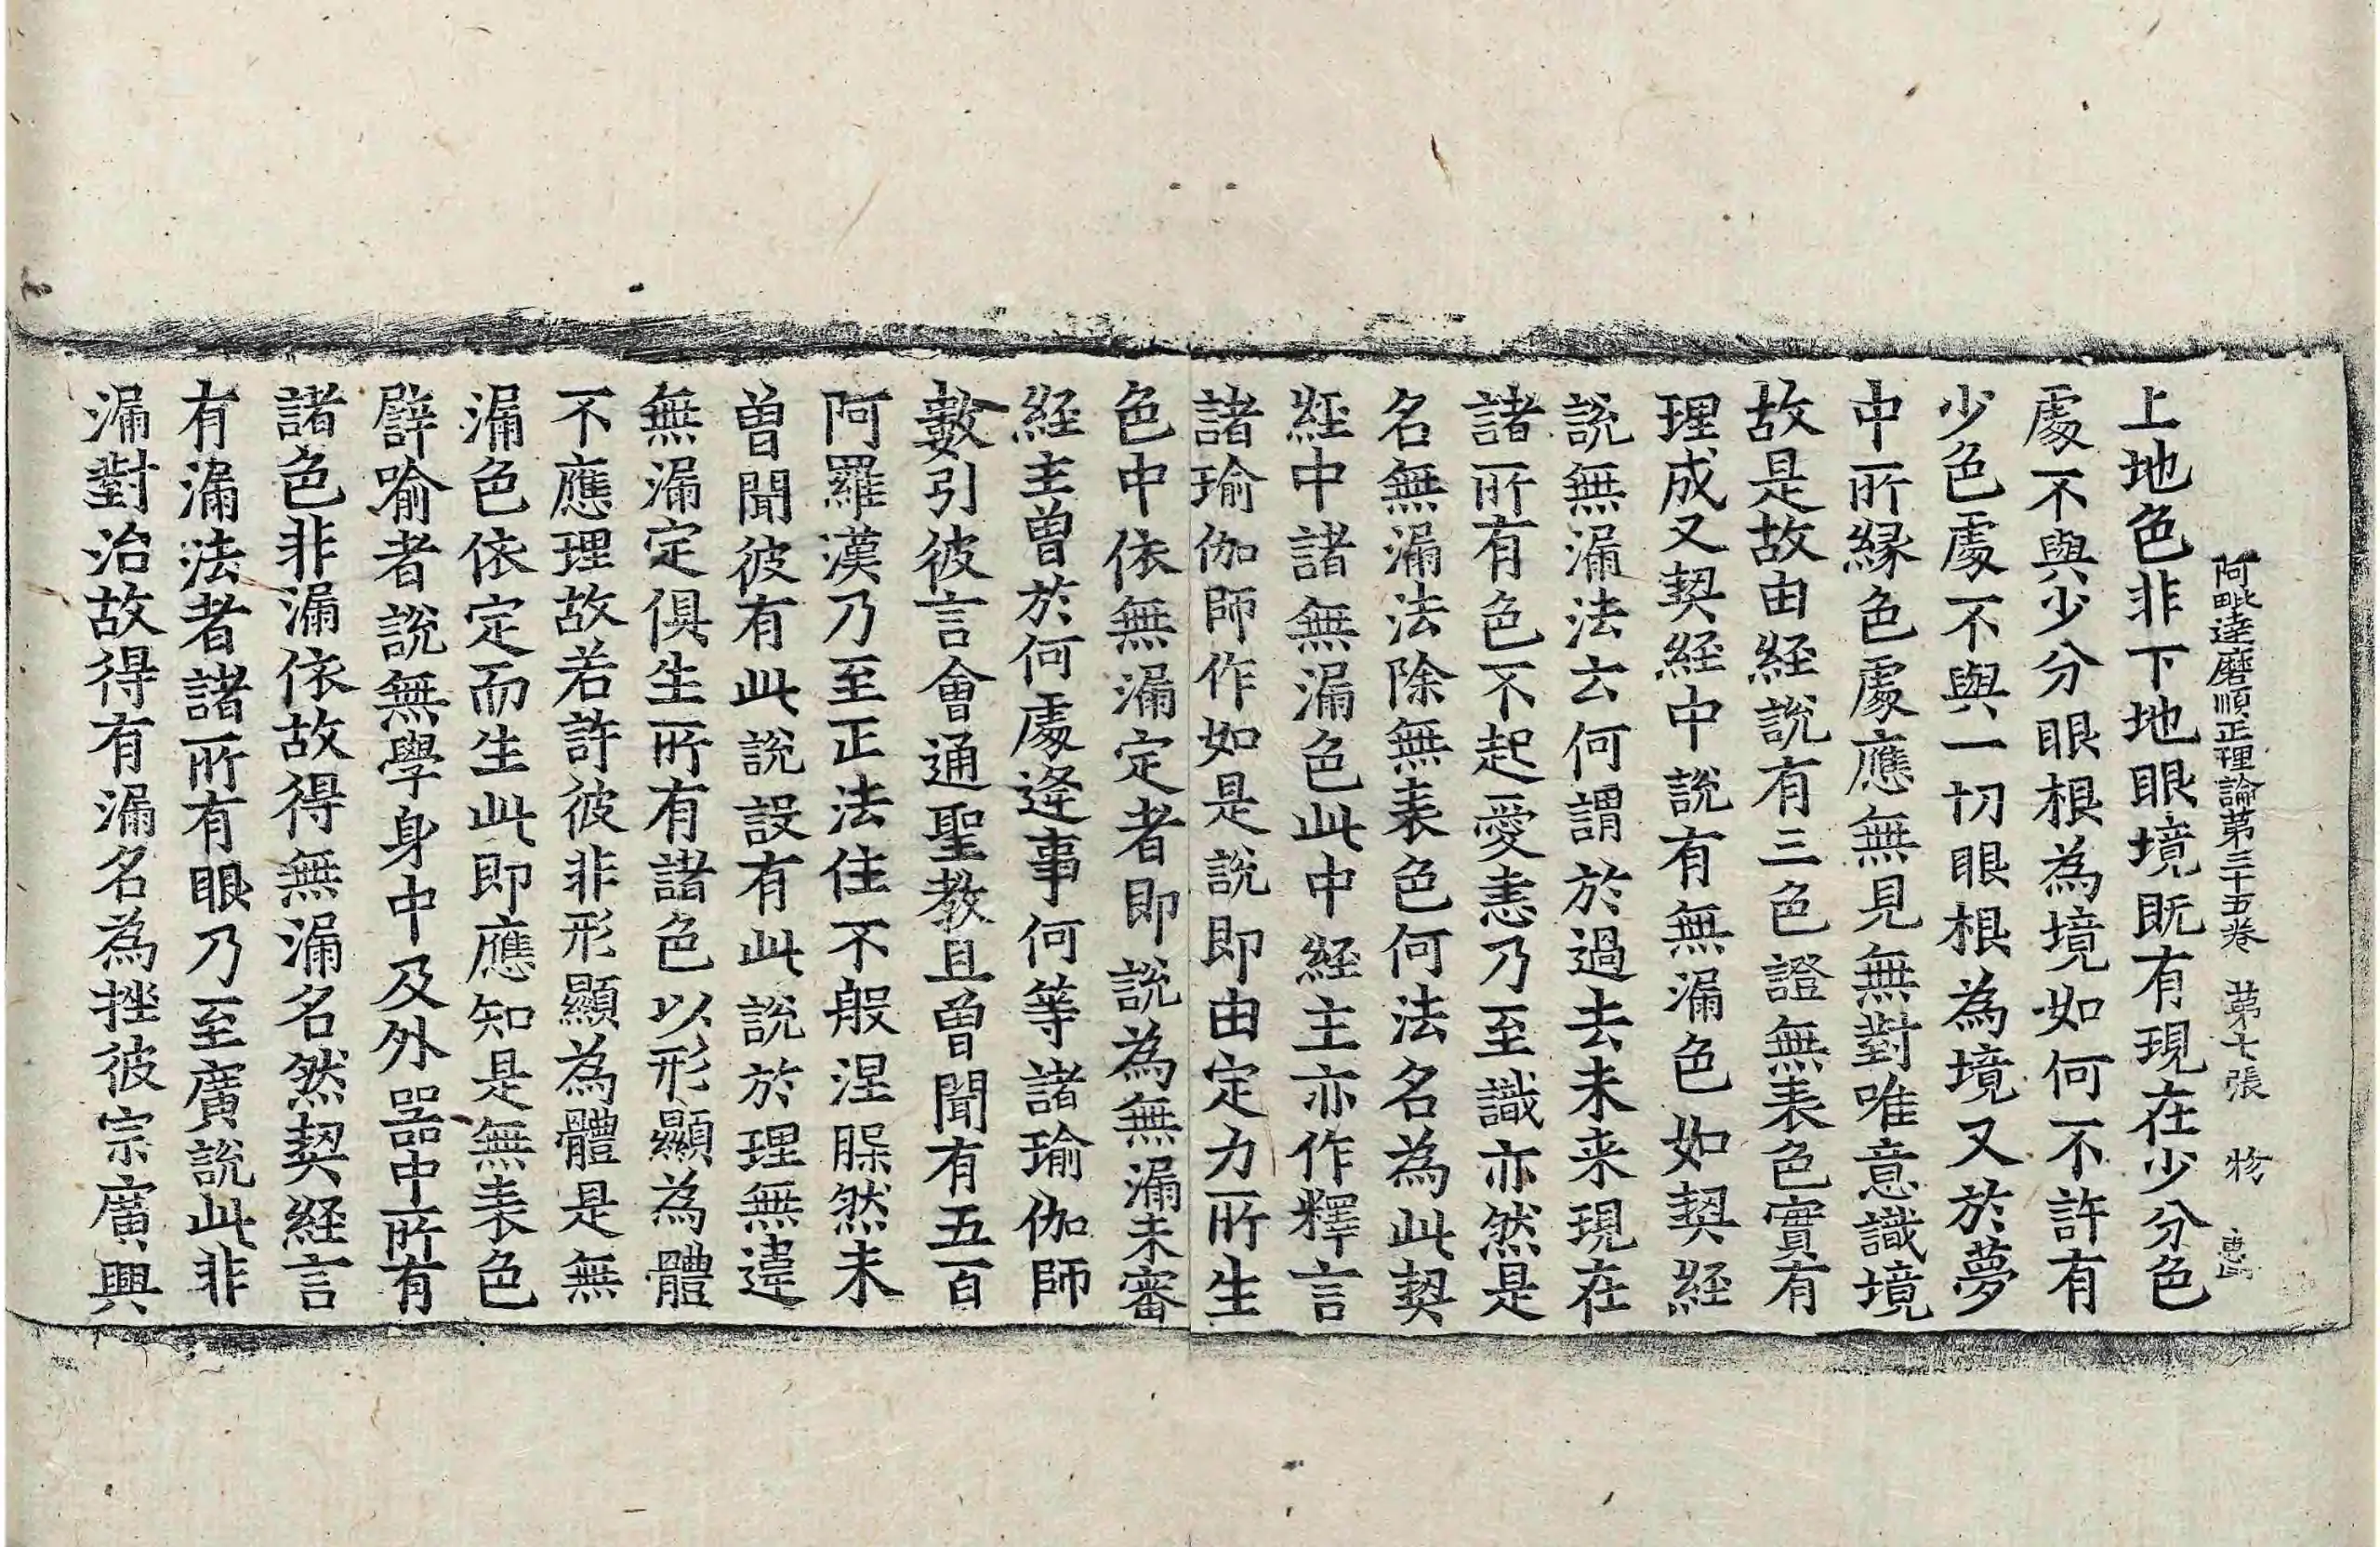 阿毗達磨順正理論第三十五卷 第七張 物
上地色非下地眼境旣有現在少分色
處不與少分眼根為境如何不許有
少色處不與一切眼根為境又於夢
中所緣色處應無見無對唯意識境
故是故由経說有三色證無表色實有
理成又契経中說有無漏色如契経
說無漏法云何謂於過去未来現在
諸所有色不起愛恚乃至識亦然是
名無漏法除無表色何法名為此契
経中諸無漏色此中経主亦作釋言
諸瑜伽師作如是說即由定力所生
色中依無漏定者即說為無漏未審
経主曾於何處逢事何等諸瑜伽師
數引彼言會通聖教且曾聞有五百
阿羅漢乃至正法住不般涅槃然未
曾聞彼有此說設有此說於理無違
無漏定俱生所有諸色以形顯為體
不應理故若許彼非形顯為體是無
漏色依定而生此即應知是無表色
譬喻者說無學身中及外器中所有
諸色非漏依故得無漏名然契経言
有漏法者諸所有眼乃至廣說此非
漏對治故得有漏名為挫彼宗廣興